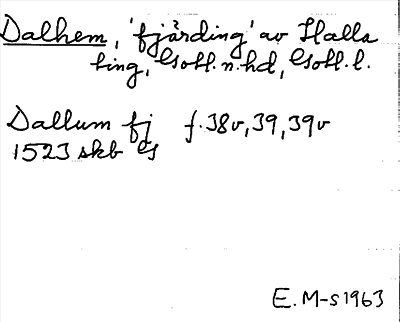 Dalhem, 'fjärding' av Halla
ting, Gotl. n. hd, Gotl. l.
Dallum fj f. 38v, 39, 39v
1523 skb G5
E. M-s 1963